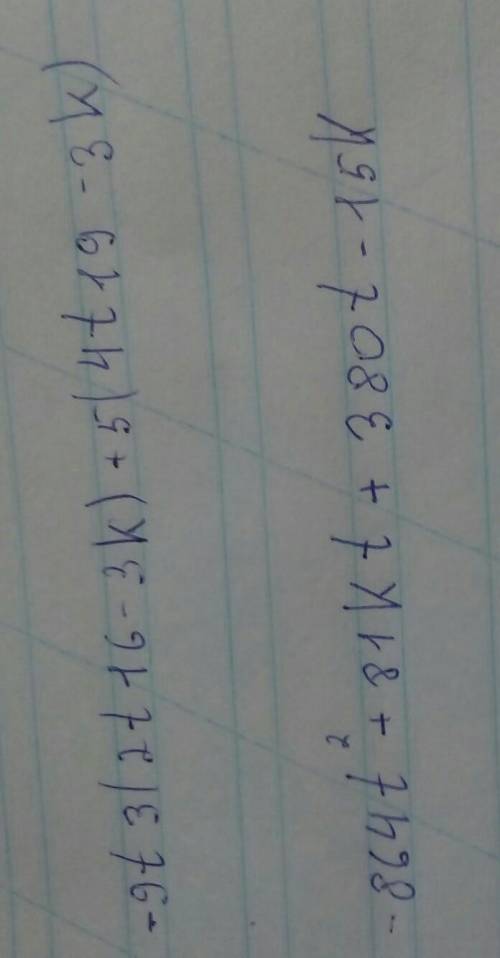 -9t 3(2t 16 - 3k) + 5(4t 19 - 3k)
-864t² + 81kt + 380t - 15k